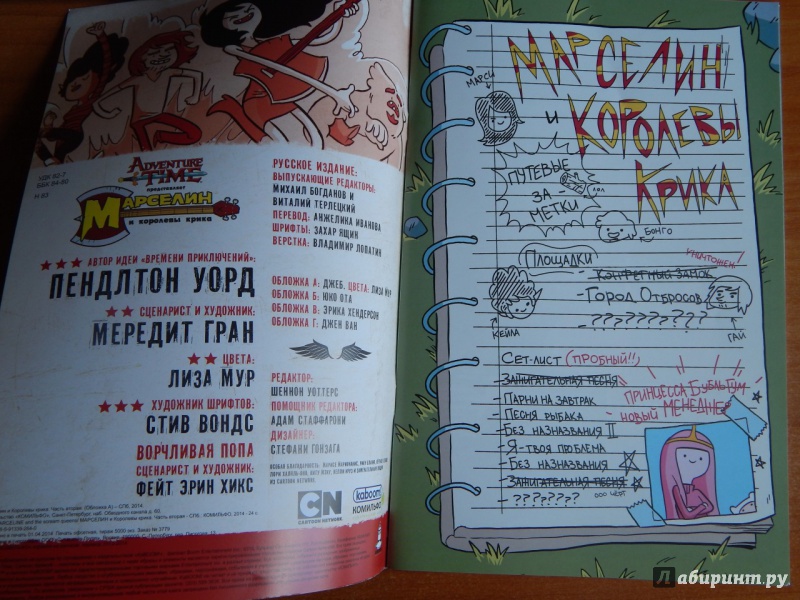 УДК 82-7
ББК 84-80
Н 63
ADVENTURE TIME
представляет
МАРСЕЛИН
и королевы крика
★★★ АВТОР ИДЕИ «ВРЕМЕНИ ПРИКЛЮЧЕНИЙ»:
ПЕНДЛТОН УОРД
★★ СЦЕНАРИСТ И ХУДОЖНИК:
МЕРЕДИТ ГРАН
★★ ЦВЕТА:
ЛИЗА МУР
★★★ ХУДОЖНИК ШРИФТОВ:
СТИВ ВОНДС
ВОРЧЛИВАЯ ПОПА
СЦЕНАРИСТ И ХУДОЖНИК:
ФЕЙТ ЭРИН ХИКС
РУССКОЕ ИЗДАНИЕ:
ВЫПУСКАЮЩИЕ РЕДАКТОРЫ:
МИХАИЛ БОГДАНОВ И
ВИТАЛИЙ ТЕРЛЕЦКИЙ
ПЕРЕВОД: АНЖЕЛИКА ИВАНОВА
ШРИФТЫ: ЗАХАР ЯЩИН
ВЕРСТКА: ВЛАДИМИР ЛОПАТИН
ОБЛОЖКА А: ДЖЕБ. ЦВЕТА: ЛИЗА МУР
ОБЛОЖКА Б: ЮКО ОТА
ОБЛОЖКА В: ЭРИКА ХЕНДЕРСОН
ОБЛОЖКА Г: ДЖЕН ВАН
РЕДАКТОР:
ШЕННОН УОТТЕРС
ПОМОЩНИК РЕДАКТОРА:
АДАМ СТАФФАРОНИ
ДИЗАЙНЕР:
СТЕФАНИ ГОНЗАГА
CN
CARTOON NETWORK
kaboom!
КОМИЛЬФО
МАРСЕЛИН
МАРСИ
И
КОРОЛЕВЫ
КРИКА
ПУТЕВЫЕ
ЗА-
МЕТКИ
ЛОЛ
БОНГО
ПЛОЩАДКИ
УНИЧТОЖЕН!
- КОНФЕТНЫЙ ЗАМОК
- ГОРОД ОТБРОСОВ
- ?????????
КЕЙЛА
ГАЙ
СЕТ-ЛИСТ (ПРОБНЫЙ!!)
- ЗАЖИГАТЕЛЬНАЯ ПЕСНЯ
- ПАРНИ НА ЗАВТРАК
- ПЕСНЯ РЫБАКА
- БЕЗ НАЗНАЗВАНИЯ II
- Я - ТВОЯ ПРОБЛЕМА
- БЕЗ НАЗНАЗВАНИЯ
- ЗАЖИГАТЕЛЬНАЯ ПЕСНЯ
- ???????
ООО ЧЕРТ
ПРИНЦЕССА БУБЛЬГУМ -
НОВЫЙ МЕНЕДЖЕР
Лабиринт.ру